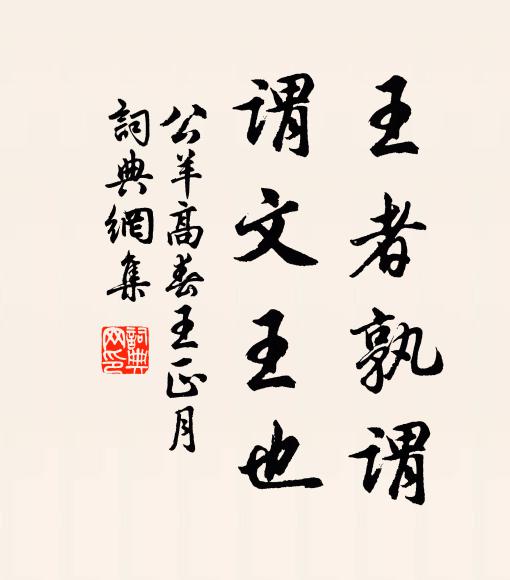 王者孰謂
謂文王也
公羊高春王正月
詞典網集
詞典網印